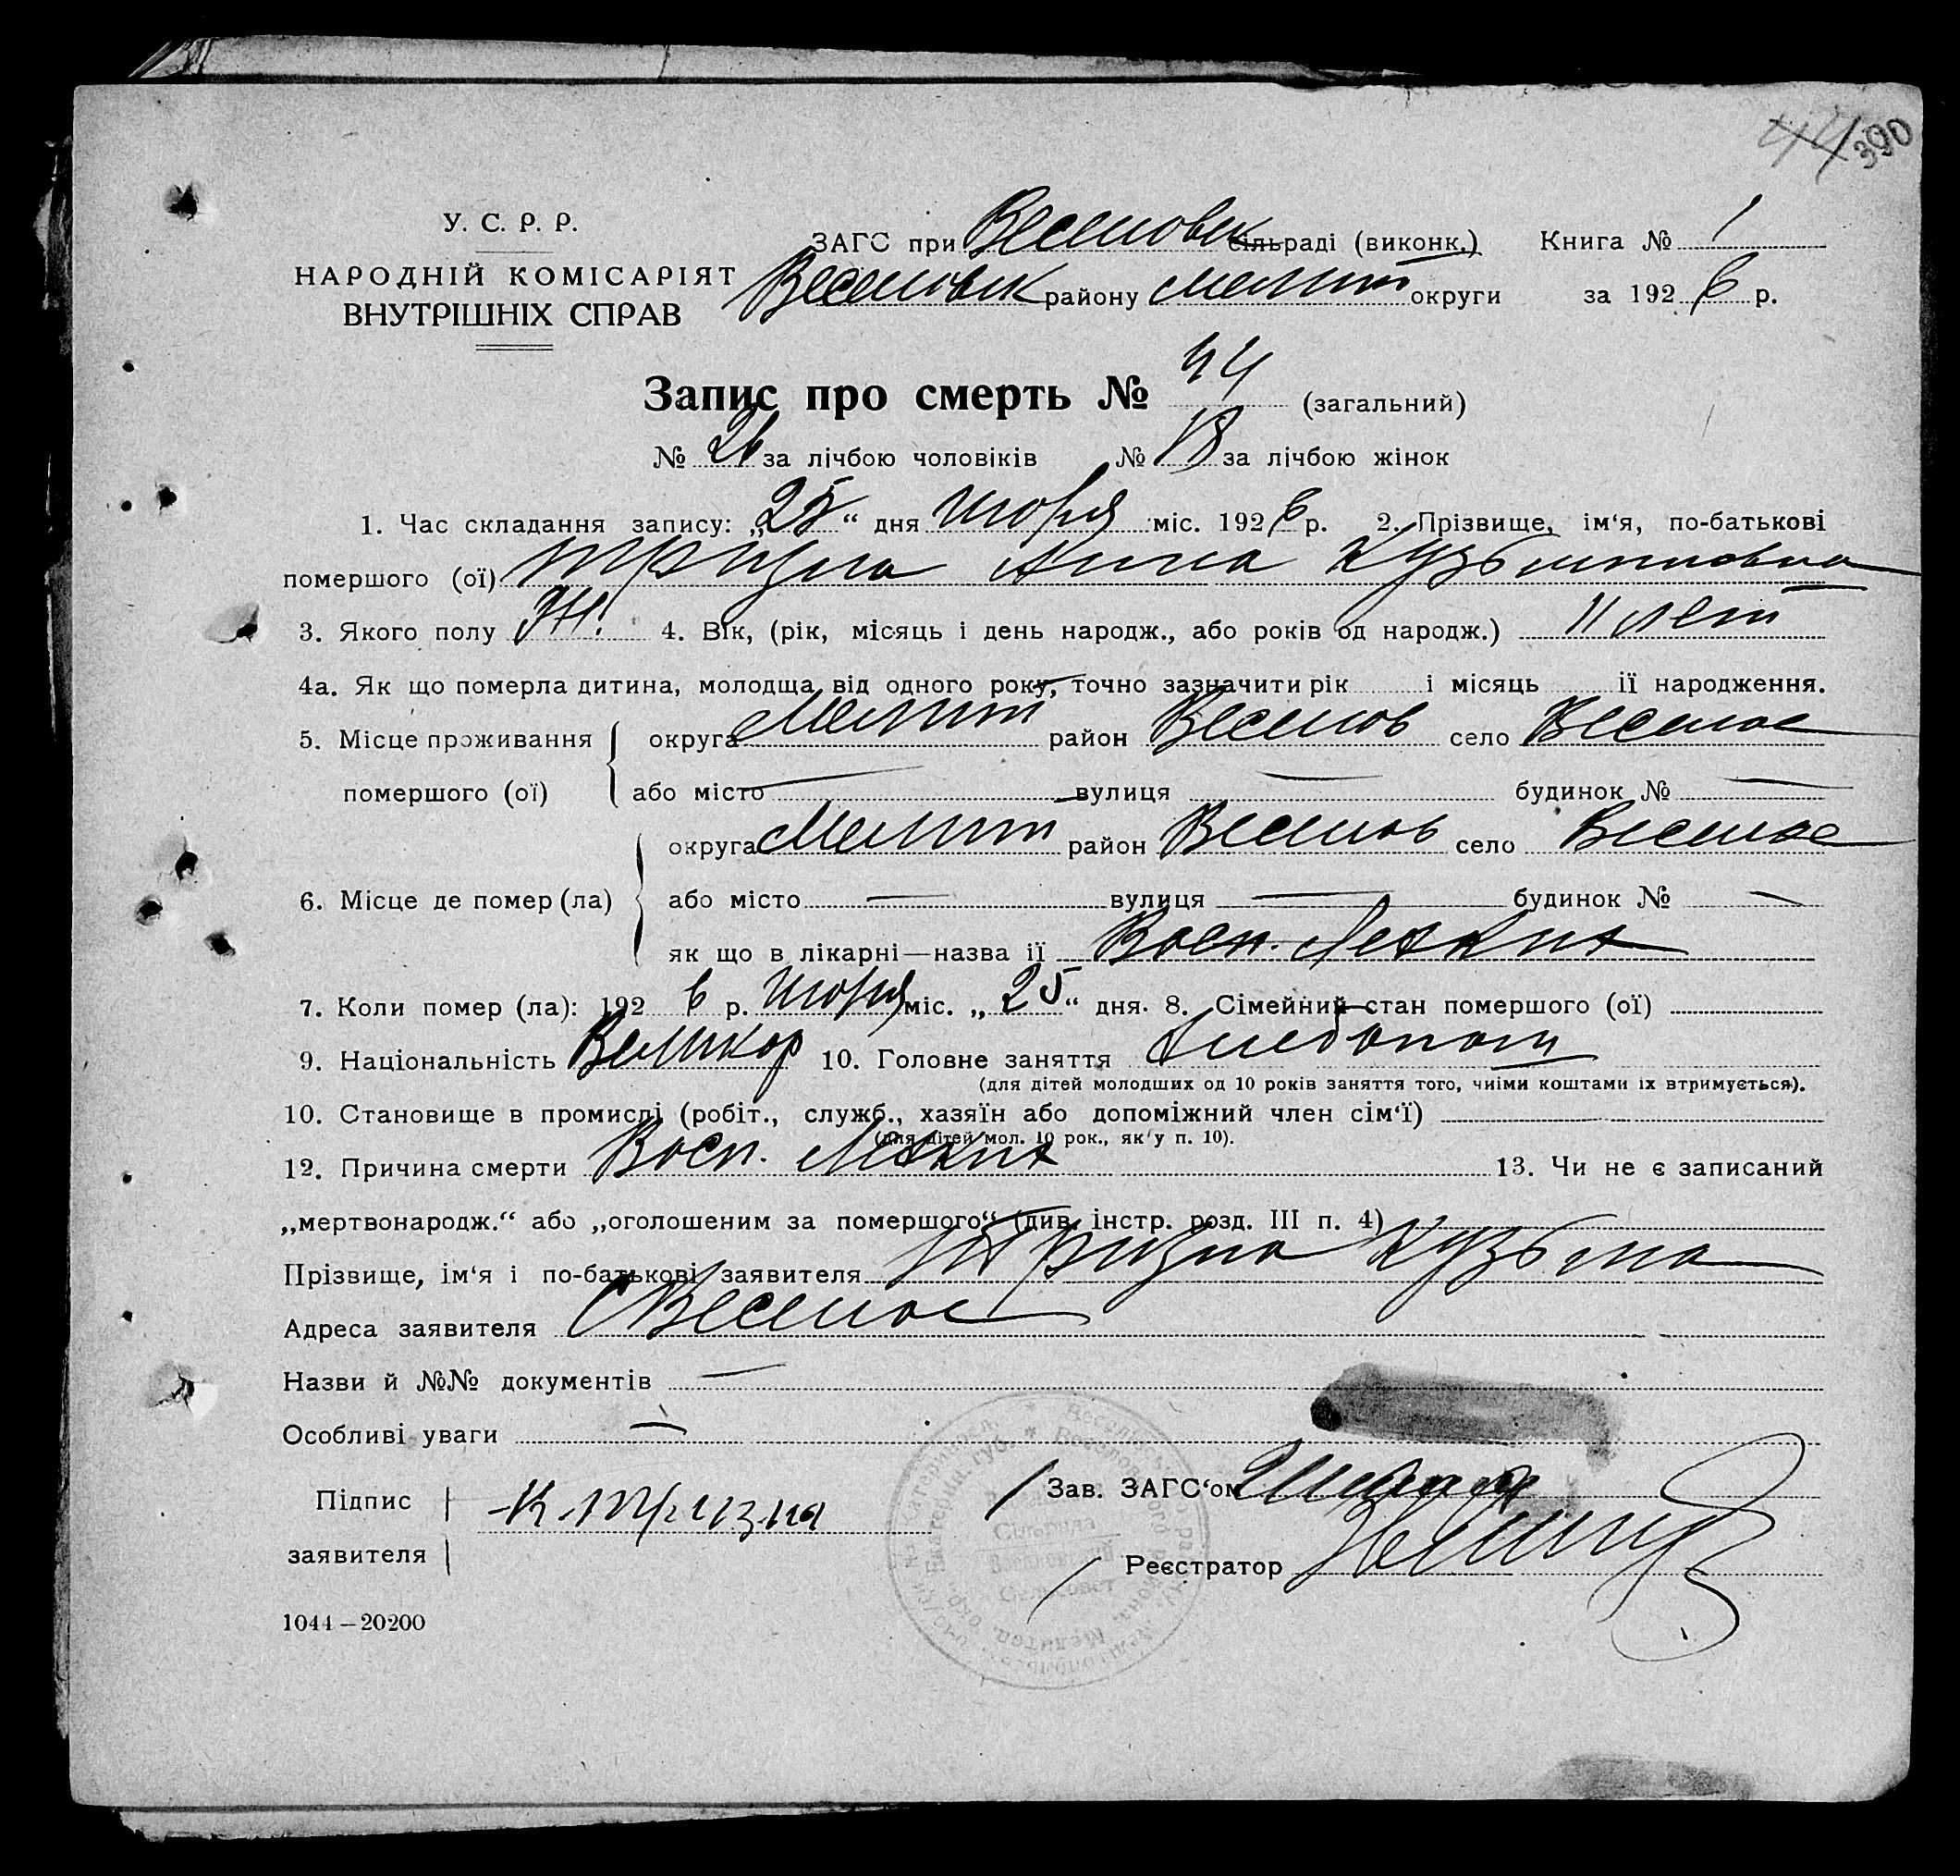 44 390
У. С. Р. Р.
НАРОДНІЙ КОМІСАРІЯТ
ВНУТРІШНІХ СПРАВ
ЗАГС при Веселовск сільраді (виконк.) Книга № 1
Веселовск району Мелит округи за 1926 р.
Запис про смерть № 44 (загальний)
№ 26 за лічбою чоловіків № 18 за лічбою жінок
1. Час складання запису: „25“ дня міс. 1926 р. 2. Прізвище, ім‘я, по-батькові
помершого (ої) Тризна Анна Кузьминовна
3. Якого полу Ж. 4. Вік, (рік, місяць і день народж., або років од народж.) 11 лет
4а. Як що померла дитина, молодща від одного року, точно зазначити рік і місяць ії народження.
5. Місце проживання округа Мелит район Веселов село Веселое
помершого (ої) або місто — вулиця — будинок № —
округа Мелит район Веселов село Веселое
6. Місце де помер (ла) або місто — вулиця — будинок № —
як що в лікарні—назва ії Восп. Легких
7. Коли помер (ла): 1926 р. міс. „25“ дня. 8. Сімейний стан помершого (ої)
9. Національність Великор 10. Головне заняття Хлебопаш
(для дітей молодших од 10 років заняття того, чиіми коштами іх втримується).
10. Становище в промислі (робіт., служб., хазяїн або допоміжний член сім‘ї)
(для дітей мол. 10 рок., як у п. 10).
12. Причина смерти Восп. Легких 13. Чи не є записаний
„мертвонародж.“ або „оголошеним за помершого“ (див. інстр. розд. III п. 4)
Прізвище, ім‘я і по-батькові заявителя Тризна Кузьма
Адреса заявителя с Веселое
Назви й №№ документів —
Особливі уваги —
Підпис
заявителя К Тризна
Зав. ЗАГС‘ом
Реєстратор
Сільрада
Веселовский
Сельсовет
1044—20200